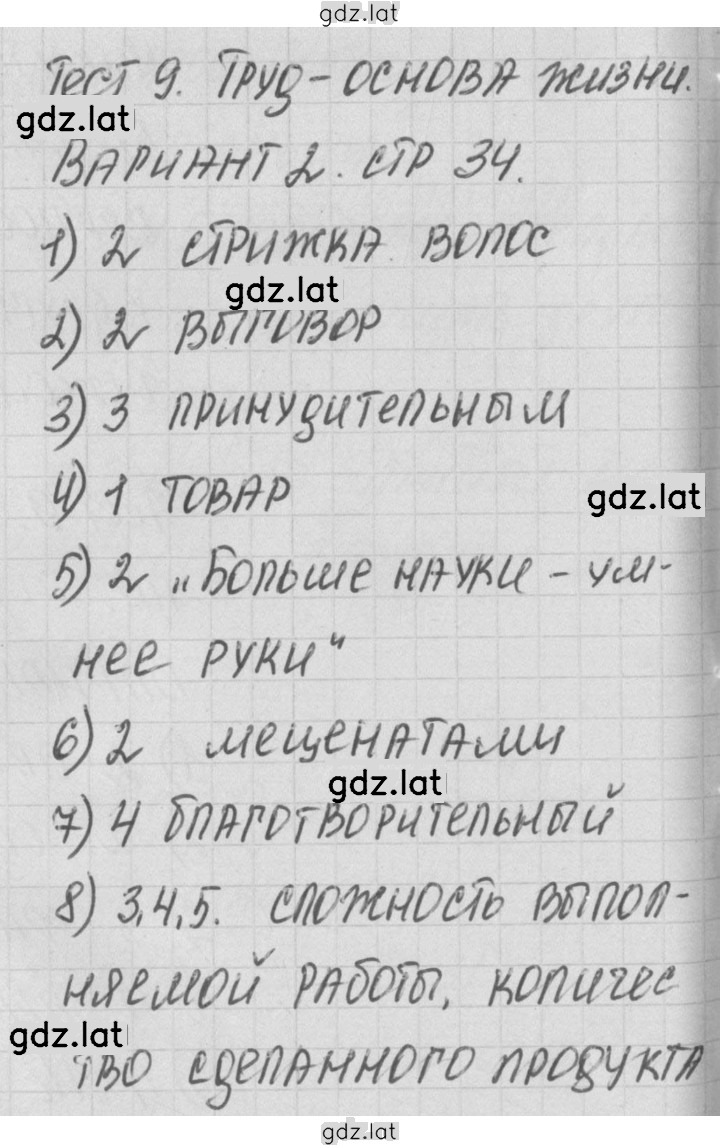 gdz.lat
Тест 9. Труд - основа жизни.
gdz.lat
Вариант 2. стр 34.
1) 2 стрижка волос
gdz.lat
2) 2 выговор
3) 3 принудительным
4) 1 товар
gdz.lat
5) 2 „Больше науки - ум-
нее руки"
6) 2 меценатами
gdz.lat
7) 4 благотворительный
8) 3,4,5. сложность выпол-
няемой работы, количес
gdz.lat
тво сделанного продукта
gdz.lat